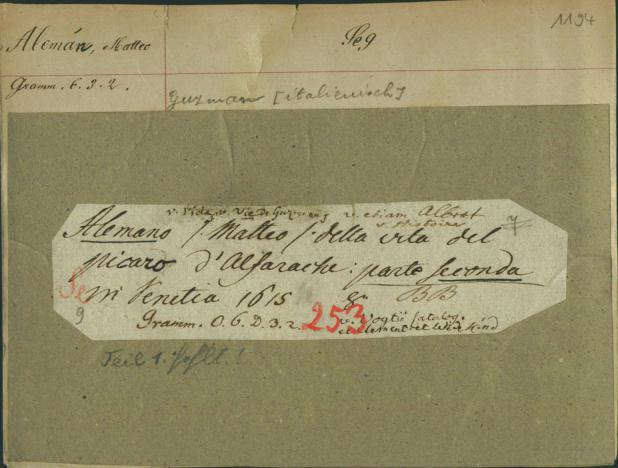 1194
Alemán, Matteo
Se,9
Gramm. 6. 3. 2.
Guzman [italienisch]
v. Vida, v. Vie de Guzman, v. etiam Albert
v. Histoire
7
Alemano /. Matteo /. della vita del
picaro d'Alfarache: parte seconda
in Venetia 1615 8. BB
Se
9
Gramm. O. 6. D. 3. 2.
253
v. Vogtii Catalog.
et Clement et Widekind
Teil 1. fehlt!